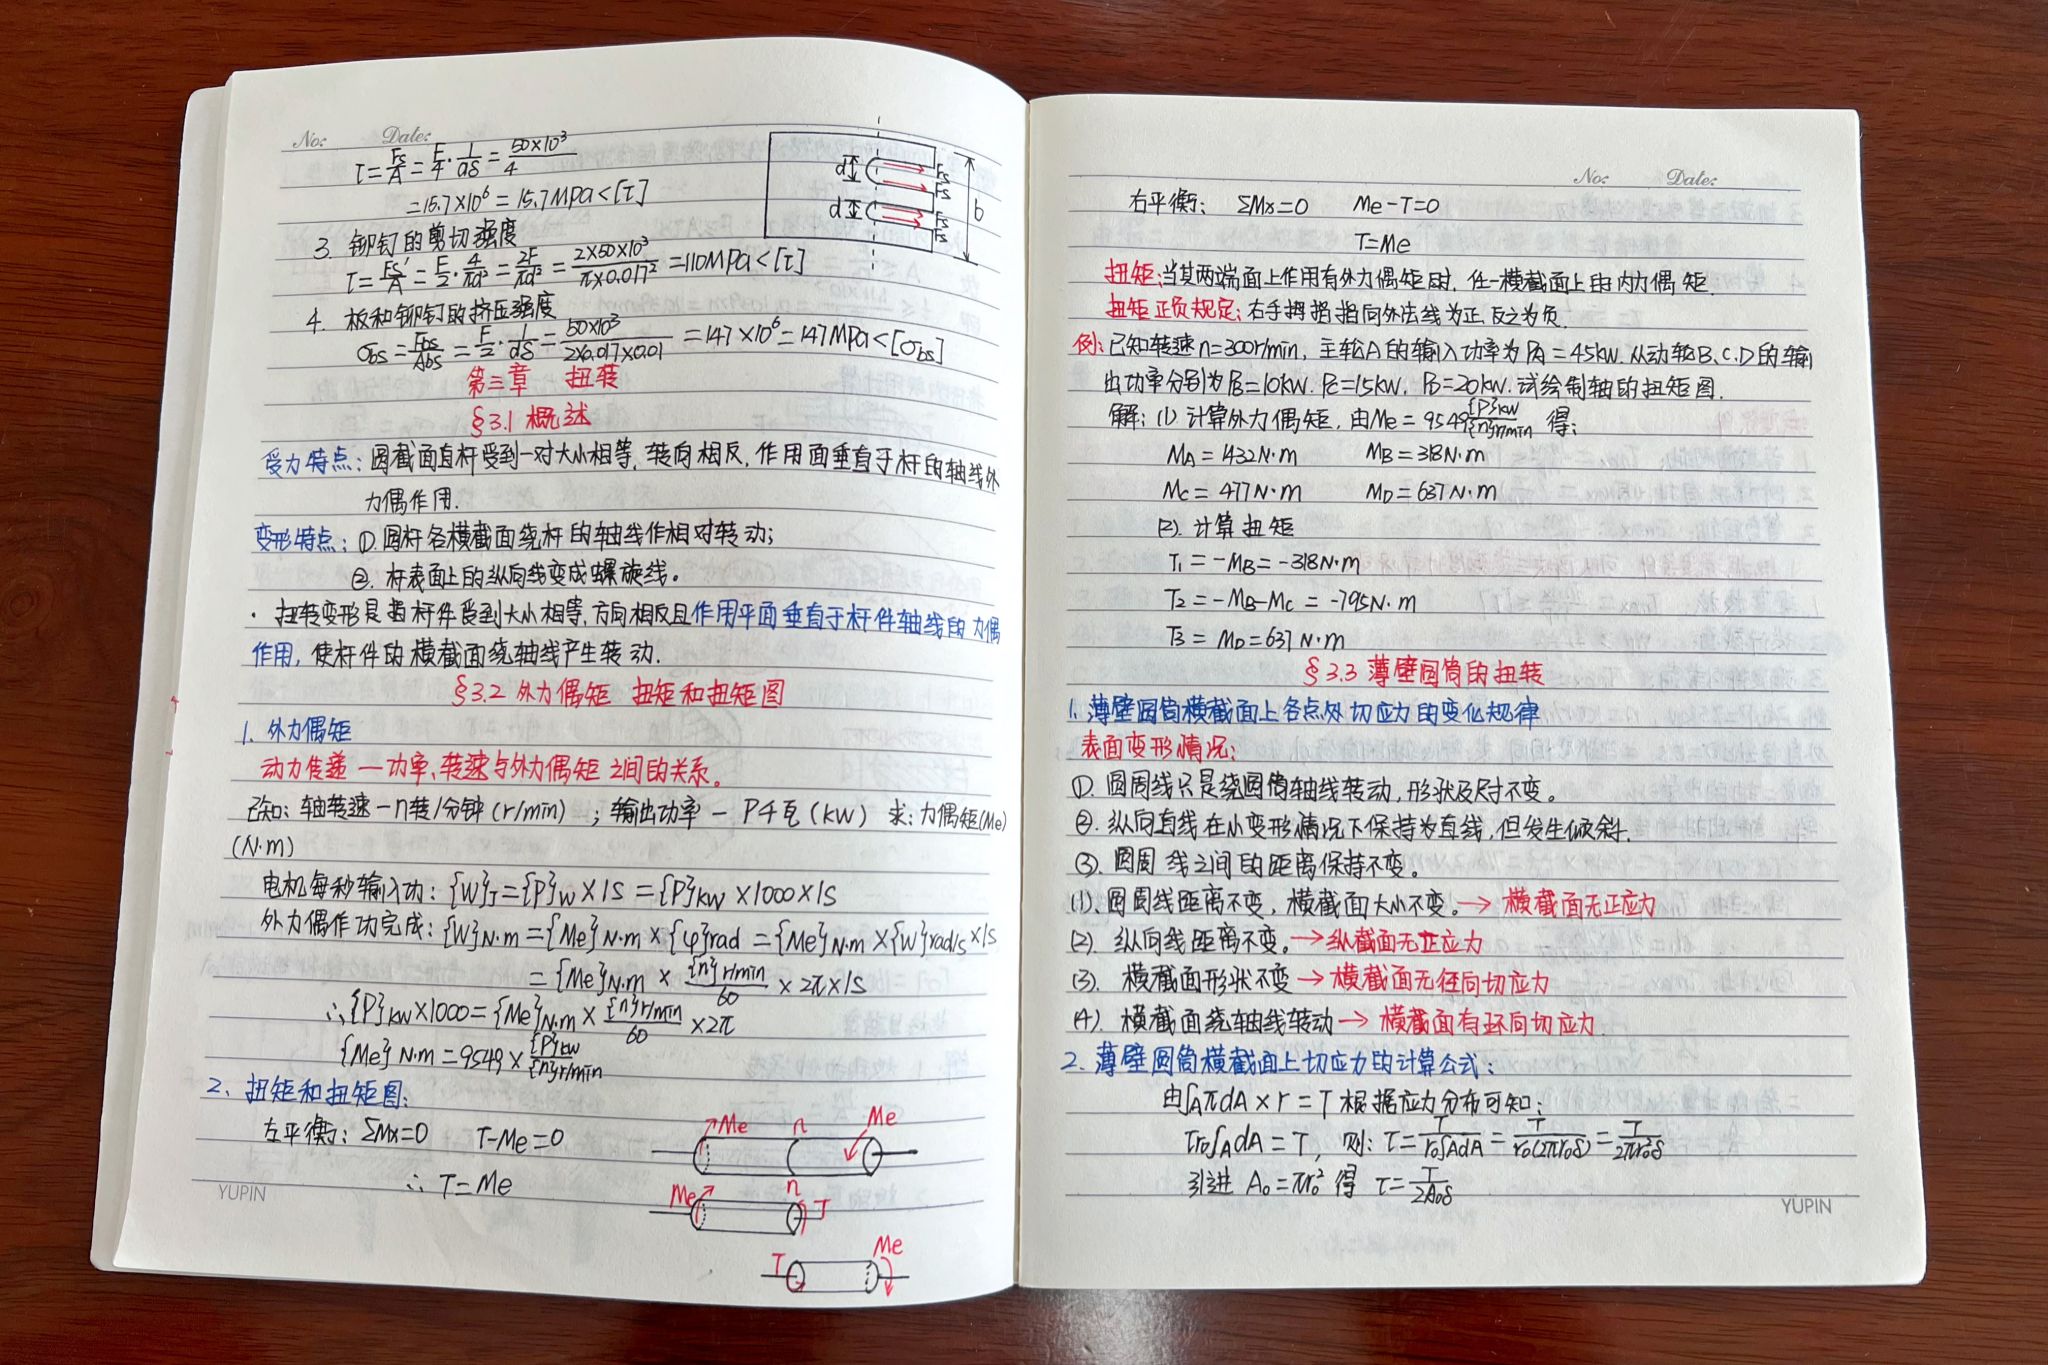 No:    Date:
τ=Fs/A=F/4·1/aδ=50×10³/4
=15.7×10⁶=15.7MPa<[τ]
3. 铆钉的剪切强度
τ=Fs'/A=F/2·4/πd²=2F/πd²=2×50×10³/π×0.017²=110MPa<[τ]
4. 板和铆钉的挤压强度
σbs=Fbs/Abs=F/2·1/dδ=50×10³/2×0.017×0.01=147×10⁶=147MPa<[σbs]
d
d
Fs
Fs
Fs
Fs
b
第三章 扭转
§3.1 概述
受力特点:圆截面直杆受到一对大小相等,转向相反,作用面垂直于杆的轴线外
力偶作用.
变形特点:①.圆杆各横截面绕杆的轴线作相对转动;
②.杆表面上的纵向线变成螺旋线。
·扭转变形是指杆件受到大小相等,方向相反且作用平面垂直于杆件轴线的力偶
作用,使杆件的横截面绕轴线产生转动.
§3.2 外力偶矩 扭矩和扭矩图
1. 外力偶矩
动力传递—功率、转速与外力偶矩之间的关系。
已知:轴转速—n转/分钟(r/min);输出功率—P千瓦(kW) 求:力偶矩(Me)
(N·m)
电机每秒输入功:{W}J={P}W×1s={P}kW×1000×1s
外力偶作功完成:{W}N·m={Me}N·m×{φ}rad={Me}N·m×{w}rad/s×1s
={Me}N·m×{n}r/min/60×2π×1s
∴{P}kW×1000={Me}N·m×{n}r/min/60×2π
{Me}N·m=9549×{P}kW/{n}r/min
2、扭矩和扭矩图:
左平衡:ΣMx=0 T-Me=0
∴T=Me
Me n Me
n
Me T
T Me
YUPIN
No:    Date:
右平衡: ΣMx=0 Me-T=0
T=Me
扭矩:当其两端面上作用有外力偶矩时,任一横截面上的内力偶矩.
扭矩正负规定:右手拇指指向外法线为正,反之为负.
例:已知转速n=300r/min,主轮A的输入功率为PA=45kW.从动轮B、C、D的输
出功率分别为PB=10kW.PC=15kW.PD=20kW.试绘制轴的扭矩图.
解:(1)计算外力偶矩,由Me=9549{P}kW/{n}r/min得:
MA=1432N·m MB=318N·m
MC=477N·m MD=637N·m
(2).计算扭矩
T1=-MB=-318N·m
T2=-MB-MC=-795N·m
T3=MD=637N·m
§3.3 薄壁圆筒的扭转
1. 薄壁圆筒横截面上各点处切应力的变化规律
表面变形情况:
①.圆周线只是绕圆筒轴线转动,形状及尺寸不变。
②.纵向直线在小变形情况下保持为直线,但发生倾斜.
③.圆周线之间的距离保持不变。
(1).圆周线距离不变,横截面大小不变。→横截面无正应力
(2).纵向线距离不变。→纵截面无正应力
(3).横截面形状不变→横截面无径向切应力
(4).横截面绕轴线转动→横截面有环向切应力.
2、薄壁圆筒横截面上切应力的计算公式:
由∫AτdA×r=T根据应力分布可知:
τr₀∫AdA=T,则:τ=T/r₀∫AdA=T/r₀(2πr₀δ)=T/2πr₀²δ
引进A₀=πr₀²得τ=T/2A₀δ
YUPIN